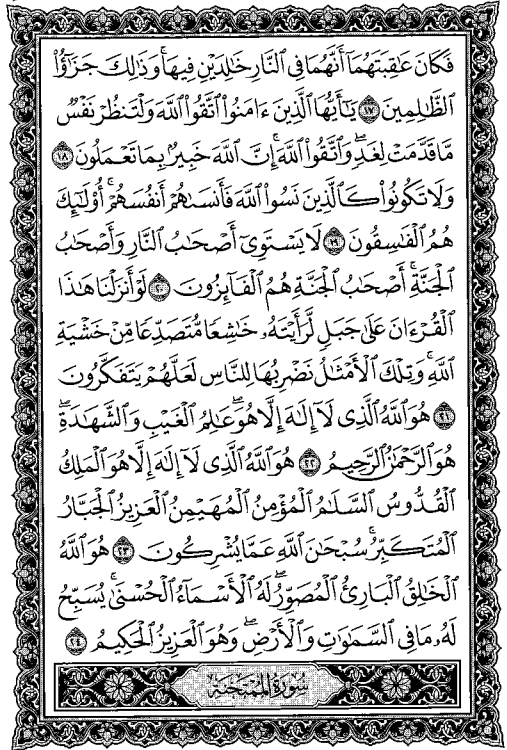 فَكَانَ عَٰقِبَتَهُمَآ أَنَّهُمَا فِي ٱلنَّارِ خَٰلِدَيْنِ فِيهَاۚ وَذَٰلِكَ جَزَٰٓؤُاْ
ٱلظَّٰلِمِينَ ١٧ يَٰٓأَيُّهَا ٱلَّذِينَ ءَامَنُواْ ٱتَّقُواْ ٱللَّهَ وَلْتَنظُرْ نَفْسٌ
مَّا قَدَّمَتْ لِغَدٍۖ وَٱتَّقُواْ ٱللَّهَۚ إِنَّ ٱللَّهَ خَبِيرٌۢ بِمَا تَعْمَلُونَ ١٨
وَلَا تَكُونُواْ كَٱلَّذِينَ نَسُواْ ٱللَّهَ فَأَنسَىٰهُمْ أَنفُسَهُمْۚ أُوْلَٰٓئِكَ
هُمُ ٱلْفَٰسِقُونَ ١٩ لَا يَسْتَوِيٓ أَصْحَٰبُ ٱلنَّارِ وَأَصْحَٰبُ
ٱلْجَنَّةِۚ أَصْحَٰبُ ٱلْجَنَّةِ هُمُ ٱلْفَآئِزُونَ ٢٠ لَوْ أَنزَلْنَا هَٰذَا
ٱلْقُرْءَانَ عَلَىٰ جَبَلٍ لَّرَأَيْتَهُۥ خَٰشِعًا مُّتَصَدِّعًا مِّنْ خَشْيَةِ
ٱللَّهِۚ وَتِلْكَ ٱلْأَمْثَٰلُ نَضْرِبُهَا لِلنَّاسِ لَعَلَّهُمْ يَتَفَكَّرُونَ
٢١ هُوَ ٱللَّهُ ٱلَّذِي لَآ إِلَٰهَ إِلَّا هُوَۖ عَٰلِمُ ٱلْغَيْبِ وَٱلشَّهَٰدَةِۖ
هُوَ ٱلرَّحْمَٰنُ ٱلرَّحِيمُ ٢٢ هُوَ ٱللَّهُ ٱلَّذِي لَآ إِلَٰهَ إِلَّا هُوَ ٱلْمَلِكُ
ٱلْقُدُّوسُ ٱلسَّلَٰمُ ٱلْمُؤْمِنُ ٱلْمُهَيْمِنُ ٱلْعَزِيزُ ٱلْجَبَّارُ
ٱلْمُتَكَبِّرُۚ سُبْحَٰنَ ٱللَّهِ عَمَّا يُشْرِكُونَ ٢٣ هُوَ ٱللَّهُ
ٱلْخَٰلِقُ ٱلْبَارِئُ ٱلْمُصَوِّرُۖ لَهُ ٱلْأَسْمَآءُ ٱلْحُسْنَىٰۚ يُسَبِّحُ
لَهُۥ مَا فِي ٱلسَّمَٰوَٰتِ وَٱلْأَرْضِۖ وَهُوَ ٱلْعَزِيزُ ٱلْحَكِيمُ ٢٤
سُورَةُ المُمْتَحِنَةِ